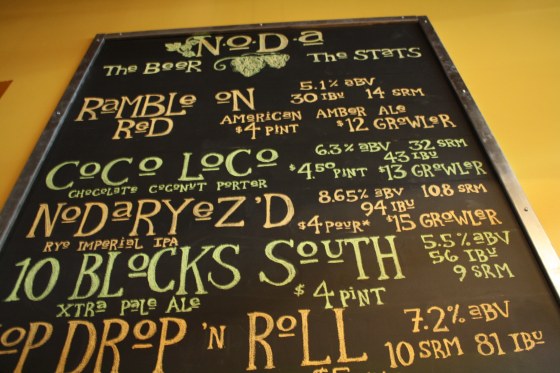 NoDa
The Beer The Stats
Ramble on 5.1% ABV
30 IBU 14 SRM
Red American Amber Ale
$4 Pint $12 Growler
Coco Loco 6.3% ABV 32 SRM
43 IBU
Chocolate Coconut Porter $4.50 Pint $13 Growler
NoDaRyeZ'D 8.65% ABV 10.8 SRM
94 IBU
Rye Imperial IPA $4 Pour* $15 Growler
10 Blocks South 5.5% ABV
56 IBU
9 SRM
Xtra Pale Ale $4 Pint
op Drop 'N Roll 7.2% ABV
10 SRM 81 IBU